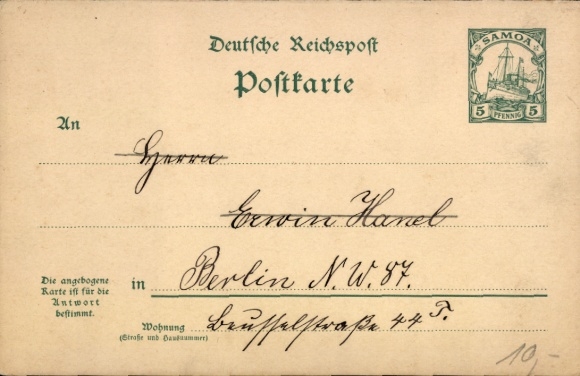 Deutsche Reichspost
Postkarte
SAMOA
5 PFENNIG 5
An
Herrn
Erwin Hanel
Die angebogene
Karte ist für die
Antwort
bestimmt.
in Berlin N.W. 87.
Wohnung
(Straße und Hausnummer)
Beusselstraße 44 F.
10,-